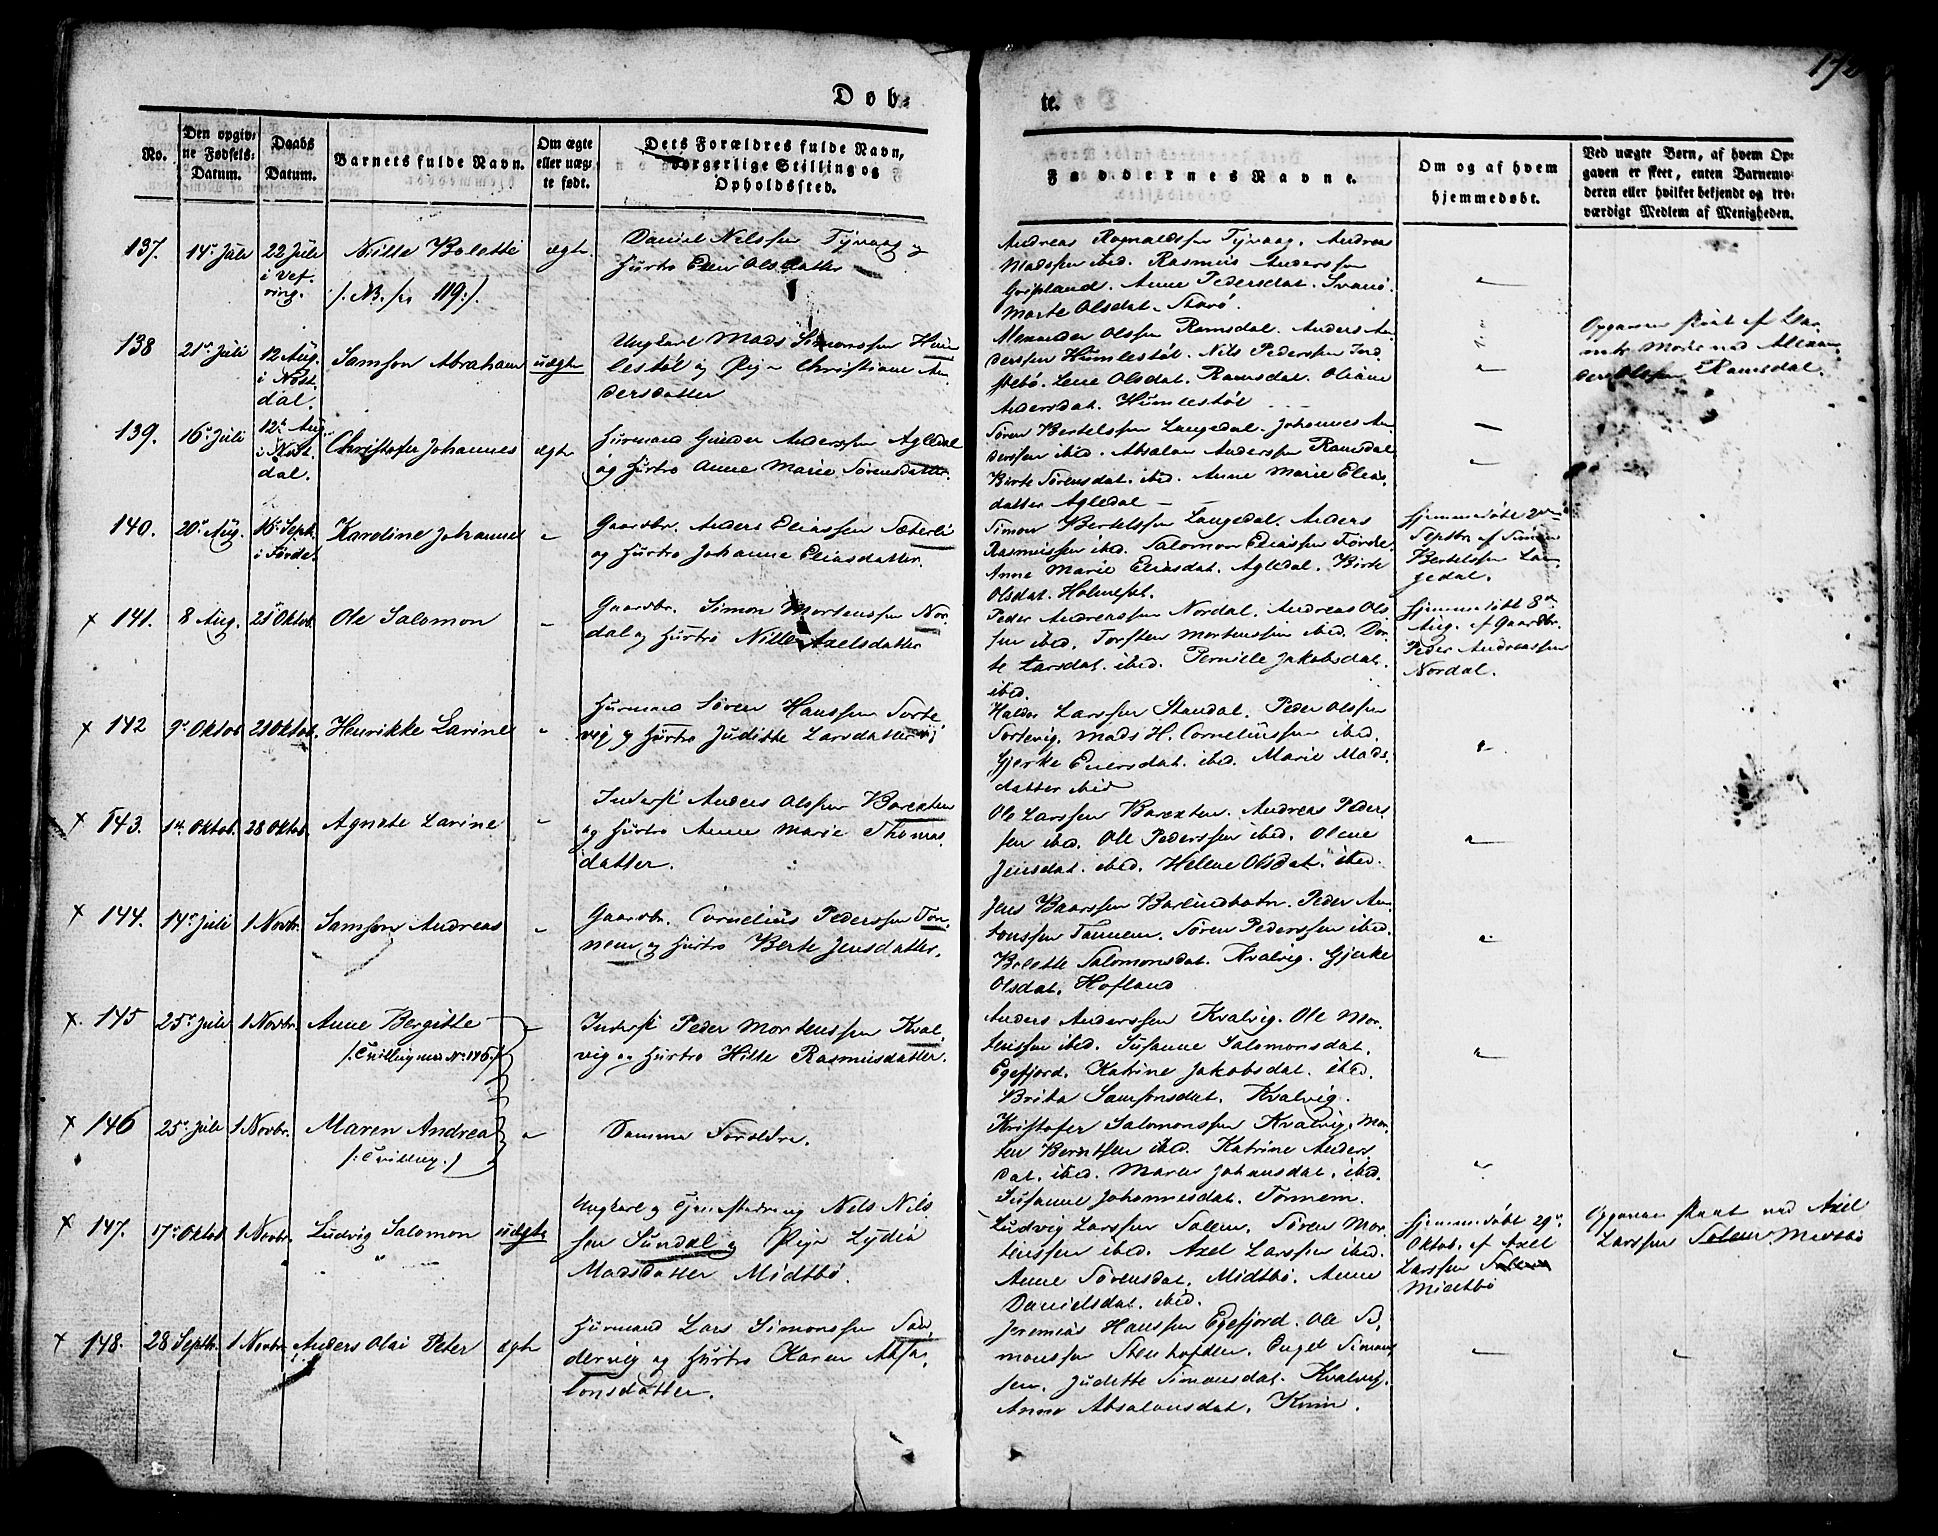 172
Døb-
te.
No.
Den opgiv-
ne Fødsels-
Datum.
Daabs
Datum.
Barnets fulde Navn.
Om ægte
eller uæg-
te født.
Dets Forældres fulde Navn,
borgerlige Stilling og
Opholdssted.
Faddernes Navne.
Om og af hvem
hjemmedøbt.
Ved uægte Børn, af hvem Op-
gaven er skeet, enten Barnemo-
deren eller hvilket bekjendt og tro-
værdigt Medlem af Menigheden.
137. 14de Juli 22 Juli Nille Bolette ægte Daniel Nilssen Tyvaag og
i Vef-
ring. /: NB. fr 119 :/ Hustro Elen Olsdatter
Andreas Rognaldssen Tyvaag. Andreas
Madssen ibid. Rasmus Anderssen
Gripland. Anne Pedersdat. Svanø.
Marte Olsdat. Stavø.
138 21de Juli 12 Aug. Samson Abraham uægte Ungkarl Mads Simonssen Hum-
i Nøst-
dal. lestøl og Pige Christiane An-
dersdatter
Alexander Olssen Ramsdal. Anders An-
derssen Humlestøl. Nils Pederssen Ind-
stebø. Lene Olsdat. Ramsdal. Oliane
Andersdat. Humlestøl
Opgaven skeet af Bar-
nets Moder ved Alexan-
der Olssen Ramsdal.
139. 16de Juli 12te Aug. Christofer Johannes ægte Huusmand Gunder Anderssen Agledal
i Nøst-
dal. og Hustro Anne Marie Sørensdatter.
Søren Bertelssen Langedal. Johannes An-
derssen ibid. Absalon Anderssen Ramsdal
Birte Sørensdat. ibid. Anne Marie Elias-
datter Agledal
140. 20de Aug. 16de Septb. Karoline Johanne Gaardbr. Anders Eliassen Sæterli
i Førde. og Hustro Johanne Eliasdatter.
Simon Bertelssen Langedal. Anders
Rasmussen ibid. Salomon Eliassen Førde.
Anne Marie Eliasdat. Agledal. Birte
Olsdat. Holmeset.
Hjemmedøbt 2den
Septbr. af Simon
Bertelssen Lan-
gedal.
141. 8 Aug. 21de Oktob. Ole Salomon Gaardbr. Simon Mortenssen Nor-
dal og Hustro Nille Axelsdatter
Peder Andreassen Nordal. Andreas Ols-
sen ibid. Torsten Mortenssen ibid. Dor-
te Larsdat. ibid. Pernille Jakobsdat.
ibid.
Hjemmedøbt 8de
Aug. af Gaardbr.
Peder Andreassen
Nordal.
142 9de Oktob 21 Oktob. Henrikke Larine Huusmand Søren Hanssen Torte-
vig og Hustro Juditte Larsdatter
Halder Larssen Standal. Peder Olssen
Tortevig. Mads H. Corneliussen ibid.
Gjerke Enersdat. ibid. Marie Mads-
datter ibid
143. 14. Oktob. 28 Oktob. Agnete Larine Inderst Anders Olssen Barexten
og Hustro Anne Marie Thomas-
datter.
Ole Larssen Barexten. Andreas Peders-
sen ibid. Ole Pederssen ibid. Olene
Jensdat. ibid. Helene Olsdat. ibid.
144. 14de Juli 1 Novbr. Samson Andreas Gaardbr. Cornelius Pederssen Ton-
nem og Hustro Berte Jensdatter.
Jens Baarssen Barlindbotn. Peder An-
tonssen Tonnem. Søren Pederssen ibid.
Bolette Salomonsdat. Kvalvig. Gjerke
Olsdat. Hofland
145 25de Juli 1 Novbr. Anne Bergitte Inderst Peder Mortenssen Kval-
/: Tvilling med No 146 :/ vig og Hustro Hilte Rasmusdatter.
Anders Anderssen Kvalvig. Ole Mor-
tenssen ibid. Susanne Salomonsdat.
Egefjord. Katrine Jakobsdat. ibid.
Brita Samsonsdat. Kvalvig.
146 25de Juli 1 Novbr. Maren Andrea Samme Foreldre.
/: Tvilling :/
Kristofer Salomonssen Kvalvig. Mor-
ten Berntsen ibid. Katrine Anders-
dat. ibid. Maren Johansdat. ibid.
Susanne Johannesdat. Tonnem.
147. 17de Oktob 1 Novbr. Ludvig Salomon uægte Ungkarl og Tjenestedreng Nils Nils-
sen Sundal og Pige Lydia
Madsdatter Midtbø.
Ludvig Larssen Solem. Søren Mor-
tenssen ibid. Axel Larssen ibid.
Anne Sørensdat. Midtbø. Anne
Danielsdat. ibid.
Hjemmedøbt 29de
Oktob. af Axel
Larssen Solem
Midtbø
Opgaven skeet ved Axel
Larssen Solem Midtbø
148. 28 Septb. 1 Novbr. Anders Olai Peter ægte Huusmand Lars Simonssen San-
dervig og Hustro Karen Absa-
lonsdatter.
Jeremias Hanssen Egefjord. Ole Si-
monssen Stenhofden. Engel Simons-
sen. Juditte Simonsdat. Kvalvig.
Anne Absalonsdat. Knim.